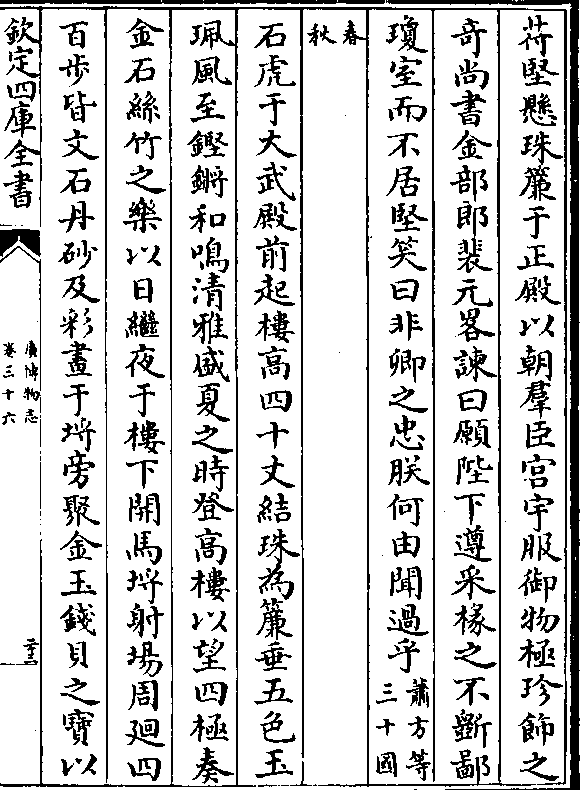 苻堅懸珠簾于正殿以朝羣臣宫宇服御物極珍飾之
竒尚書金部郎裴元畧諫曰願陛下遵采椽之不斵鄙
瓊室而不居堅笑曰非卿之忠朕何由聞過乎蕭方等三十國
春秋
石虎于大武殿前起樓高四十丈結珠為簾垂五色玉
珮風至鏗鏘和鳴清雅盛夏之時登高樓以望四極奏
金石絲竹之樂以日繼夜于樓下開馬埓射場周廻四
百步皆文石丹砂及彩畫于埓旁聚金玉錢貝之寶以
欽定四庫全書
廣博物志
卷三十六
二十三